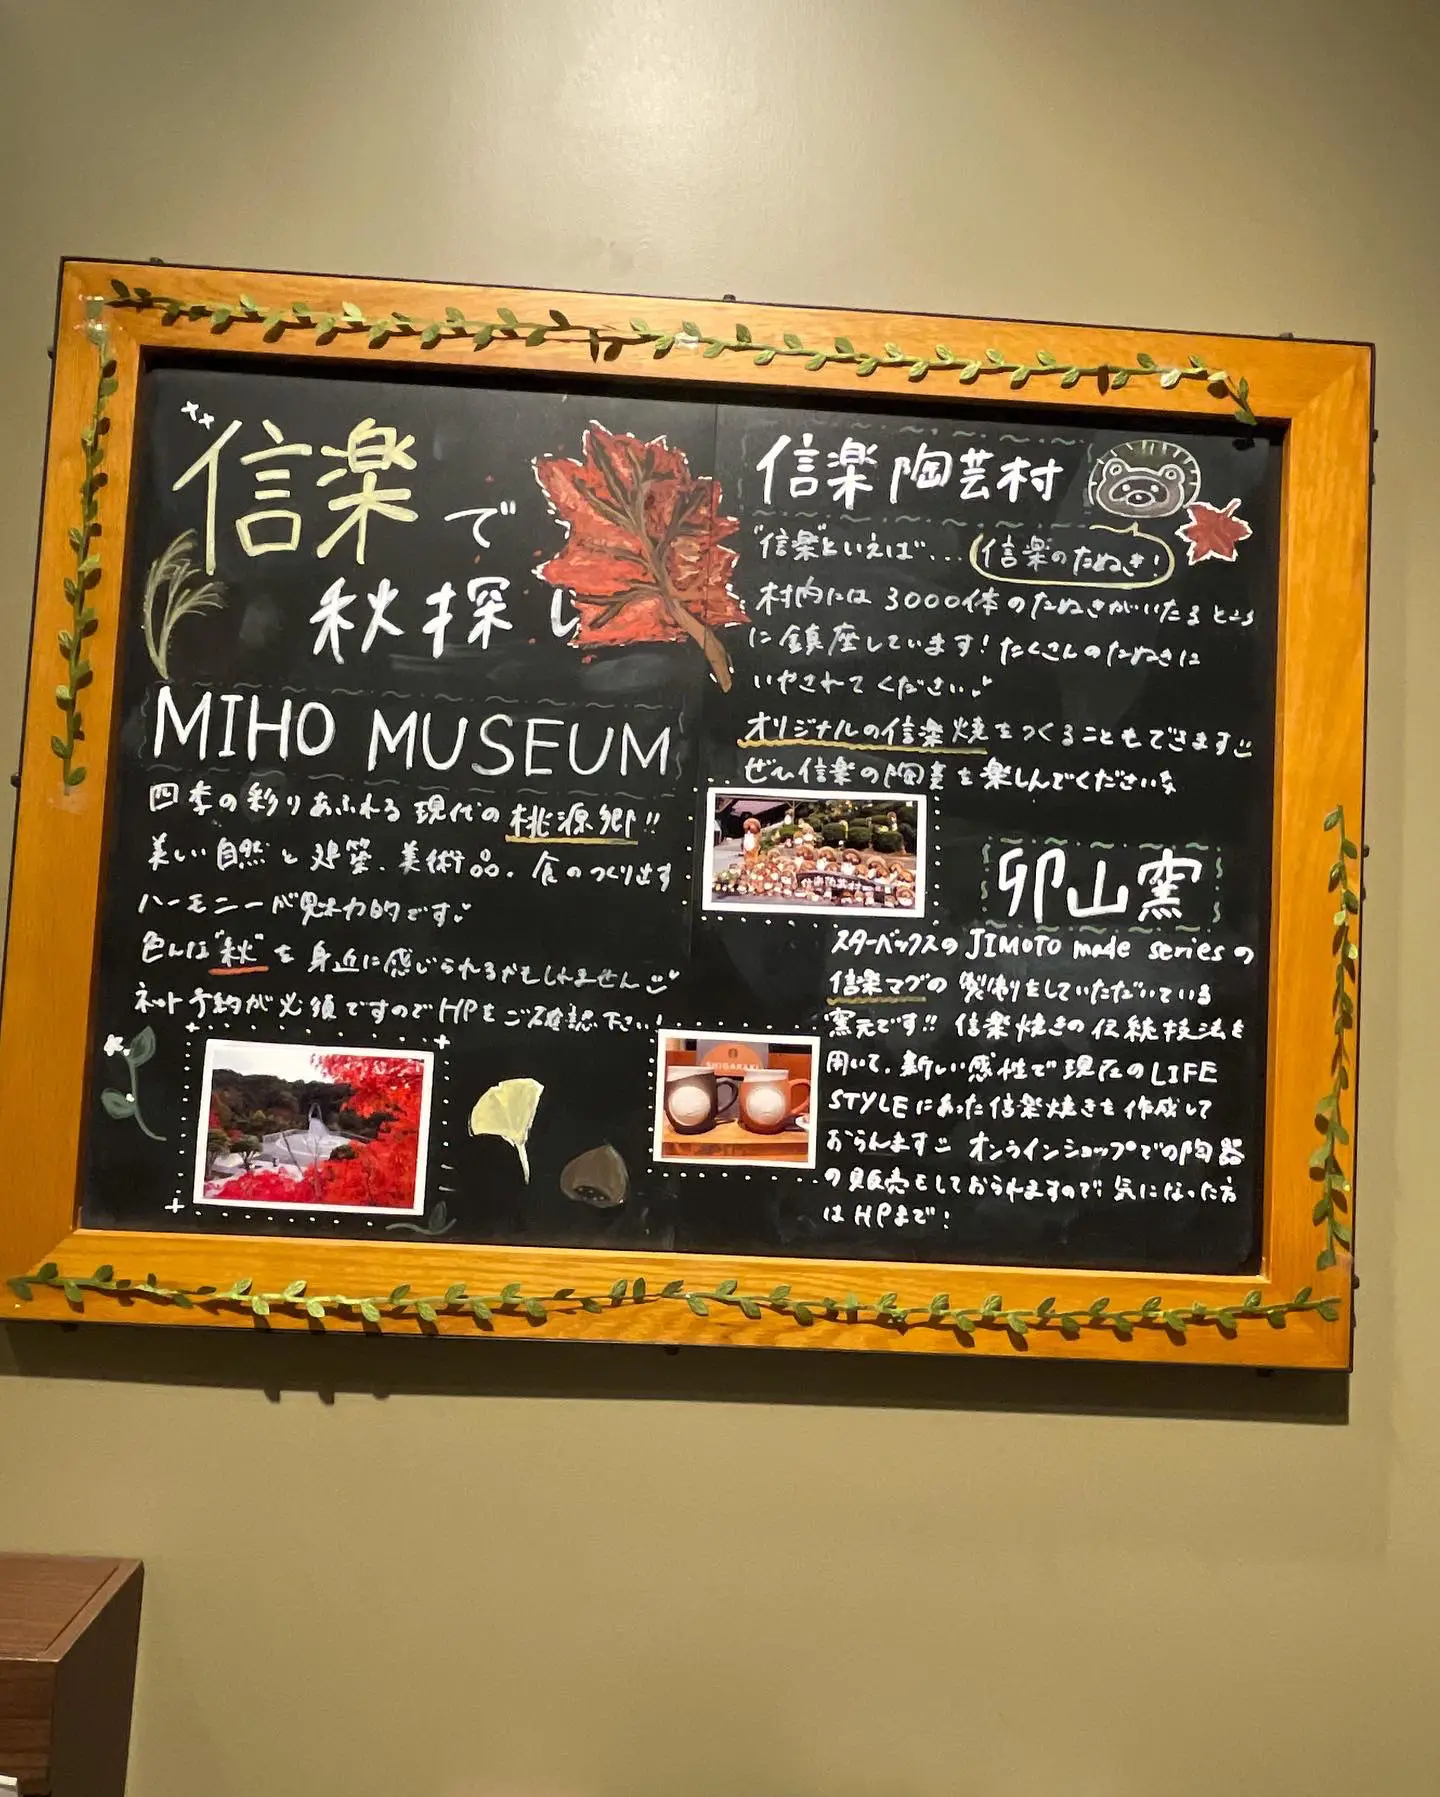 信楽で
秋探し
MIHO MUSEUM
四季の彩りあふれる現代の桃源郷!!
美しい自然と建築、美術品、食のつくり出す
ハーモニーが魅力的です
色んな"秋"を身近に感じられるかもしれません
ネット予約が必須ですのでHPをご確認下さい!
信楽陶芸村
"信楽"といえば"... 信楽のたぬき!
村内には3000体のたぬきがいたるところ
に鎮座しています!たくさんのたぬきに
いやされてください
オリジナルの信楽焼をつくることもできます
ぜひ信楽の陶芸を楽しんでください
信楽陶芸村
卯山窯
スターバックスのJIMOTO made seriesの
信楽マグの製作をしていただいている
窯元です!! 信楽焼きの伝統技法を
用いて、新しい感性で現在のLIFE
STYLEにあった信楽焼きを作成して
おられます オンラインショップでの陶器
の販売もしておられますので、気になった方
はHPまで!
SHIGARAKI